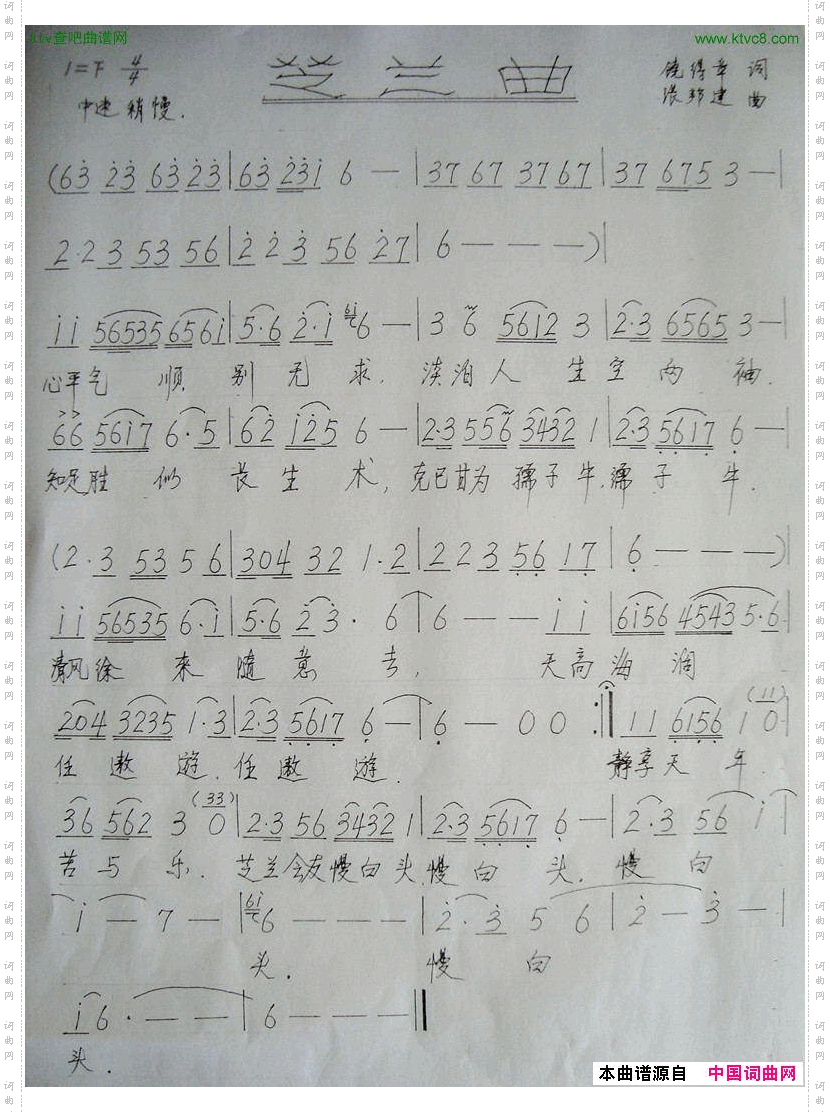 ktv查吧曲谱网 www.ktvc8.com
1=F 4/4 芝兰曲 饶得章 词
中速稍慢. 张邦建 曲
(63 23 63 23|63 231 6 —|37 67 37 67|37 675 3 —|
2·23 53 56|2 23 56 27|6 — — —)|
11 56535 6561|5·6 2·1 61 6 —|3 6 5612 3|2·3 6565 3 —|
心平气 顺 别 无 求. 淡泊人 生 空 两 袖.
66 5617 6·5|62 125 6 —|2·3 556 3432 1|2·3 5617 6 —|
知足胜 似 长 生 术, 克已甘为 孺子牛, 孺 子 牛.
(2·3 53 5 6|304 32 1·2|2 23 56 17|6 — — —)|
11 56535 6·1|5·6 2 3· 6|6 — — 11|6156 4543 5·6|
清风徐 来 随 意 去, 天高 海 阔
204 3235 1·3|2·3 5617 6 —|6 — 0 0 :‖ 11 6156 1 0(11)|
任 遨 游. 任 遨 游. 静享天 年.
36 562 3 0(33)|2·3 56 3432 1|2·3 5617 6 —|2·3 56 1|
苦 与 乐. 芝兰会友慢白头, 慢 白 头. 慢 白
1 — 7 —|61 6 — — —|2·3 5 6|2 — 3 —|
头. 慢 白
16· — —|6 — — —‖
头.
本曲谱源自 中国词曲网
词曲网